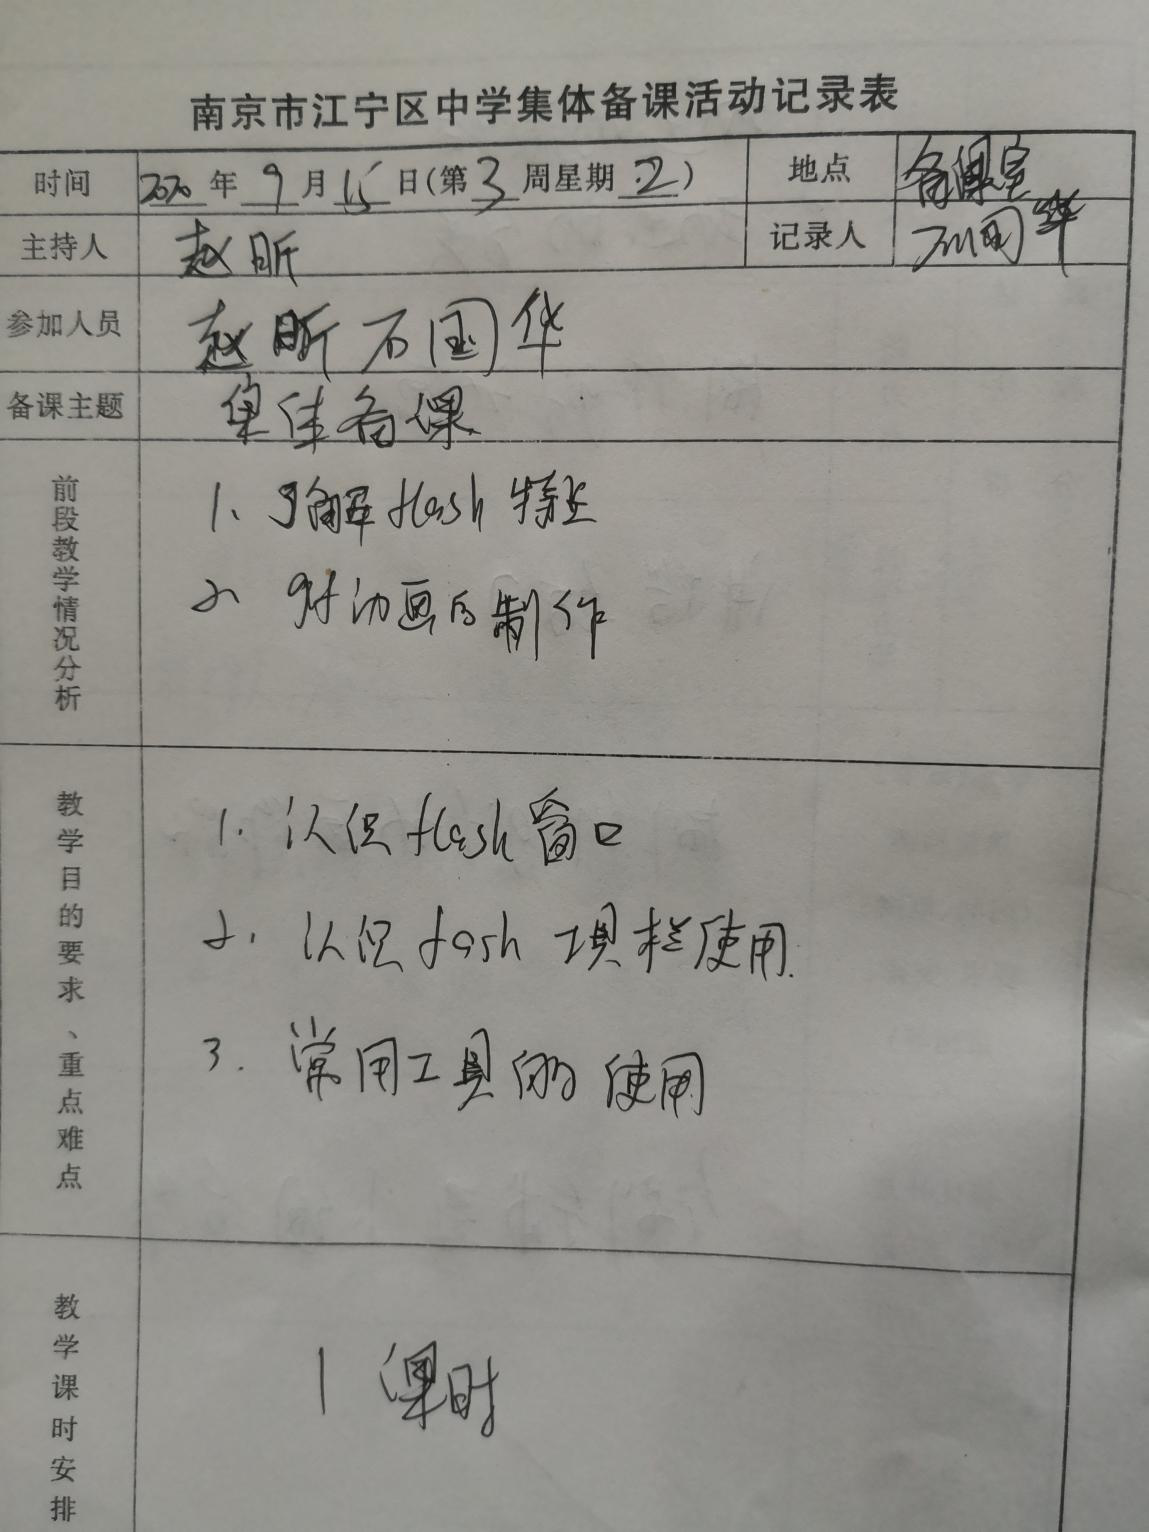 南京市江宁区中学集体备课活动记录表
时间 2020年9月15日(第3周星期二) 地点 备课室
主持人 赵昕 记录人 石国华
参加人员 赵昕 石国华
备课主题 集体备课
前段教学情况分析
1、了解flash特征
2、对动画的制作
教学目的要求、重点难点
1.认识flash窗口
2.认识flash工具栏使用.
3.常用工具的使用
教学课时安排
1 课时